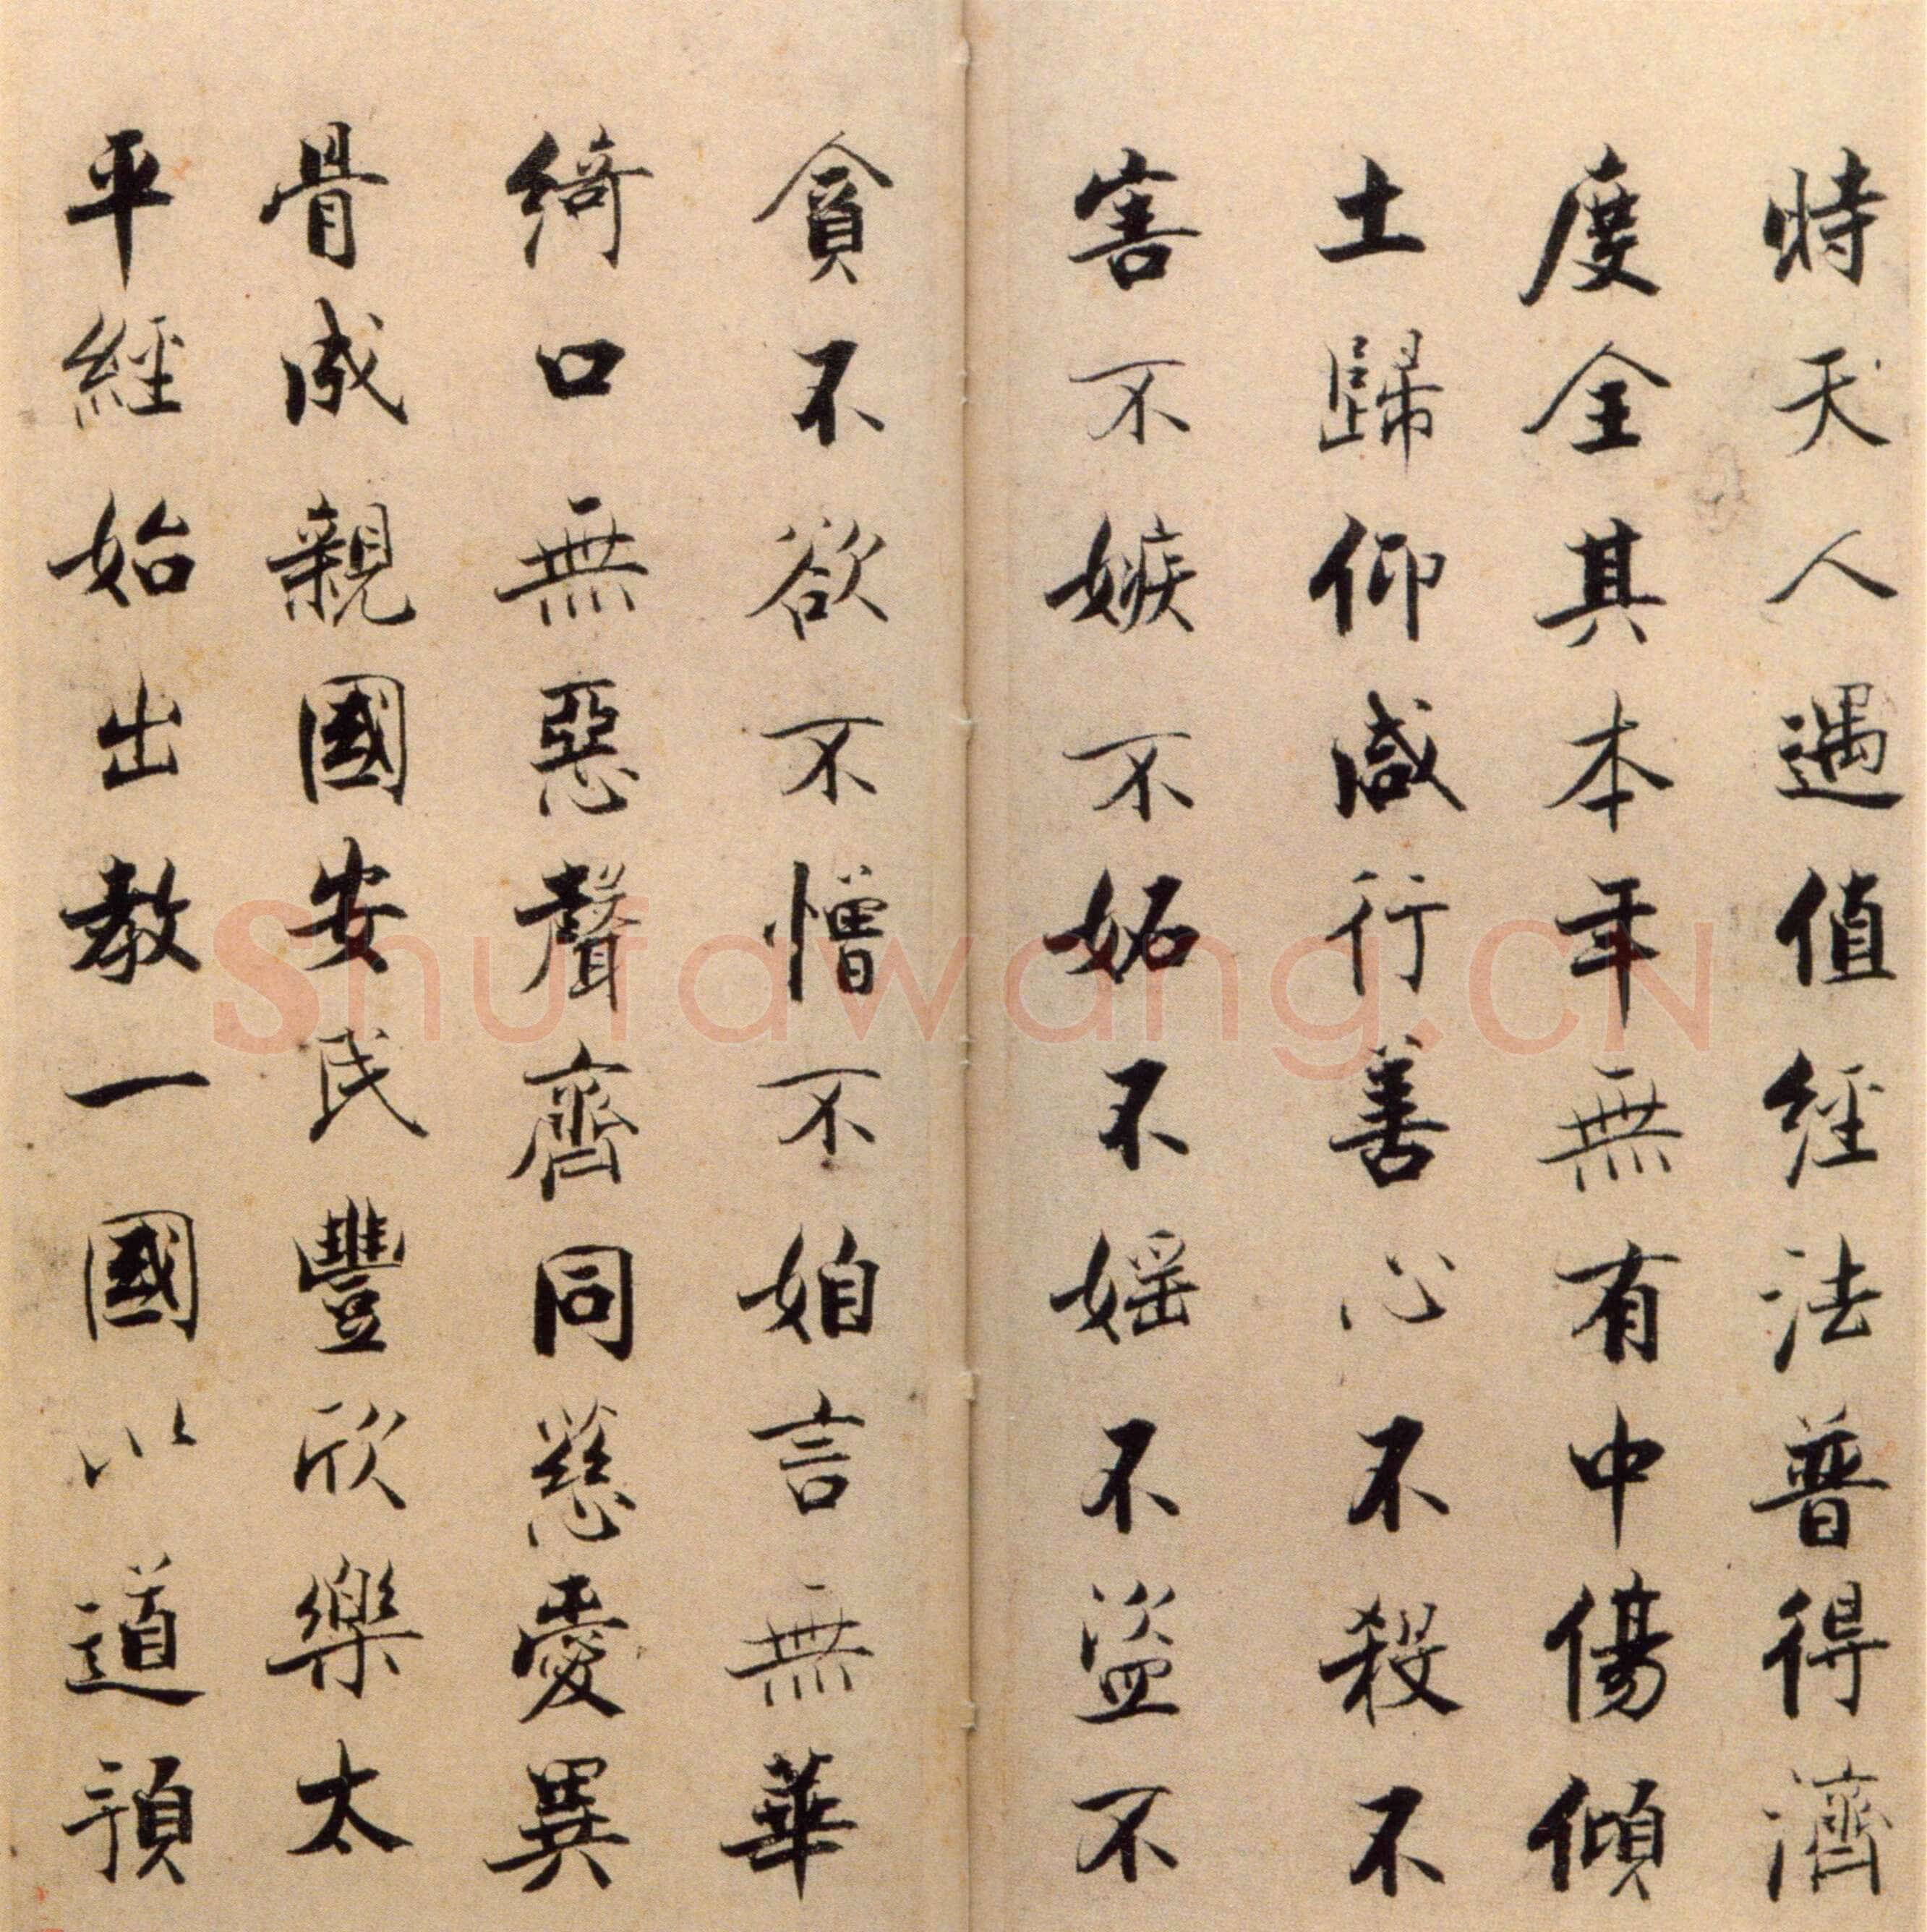 時天人遇值經法普得濟
度全其本年無有中傷傾
土歸仰咸行善心不殺不
害不嫉不妬不婬不盜不
貪不欲不憎不妲言無華
綺口無惡聲齊同慈愛異
骨成親國安民豐欣樂太
平經始出教一國以道預
Shufawang.CN